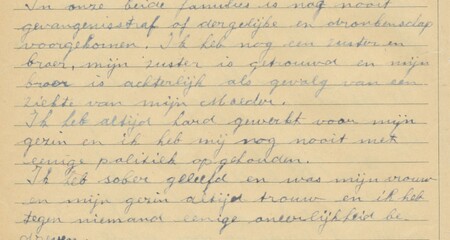 In onze beide families is nog nooit
gevangenisstraf of dergelijke en dronkenschap
voorgekomen. Ik heb nog een zuster en
broer, mijn zuster is getrouwd en mijn
broer is achterlijk als gevolg van een
ziekte van mijn Moeder.
Ik heb altijd hard gewerkt voor mijn
gezin en ik heb mij nog nooit met
eenige politiek opgehouden.
Ik heb sober geleefd en was mijn vrouw
en mijn gezin altijd trouw en ik heb
tegen niemand eenige oneerlijkheid be
dreven